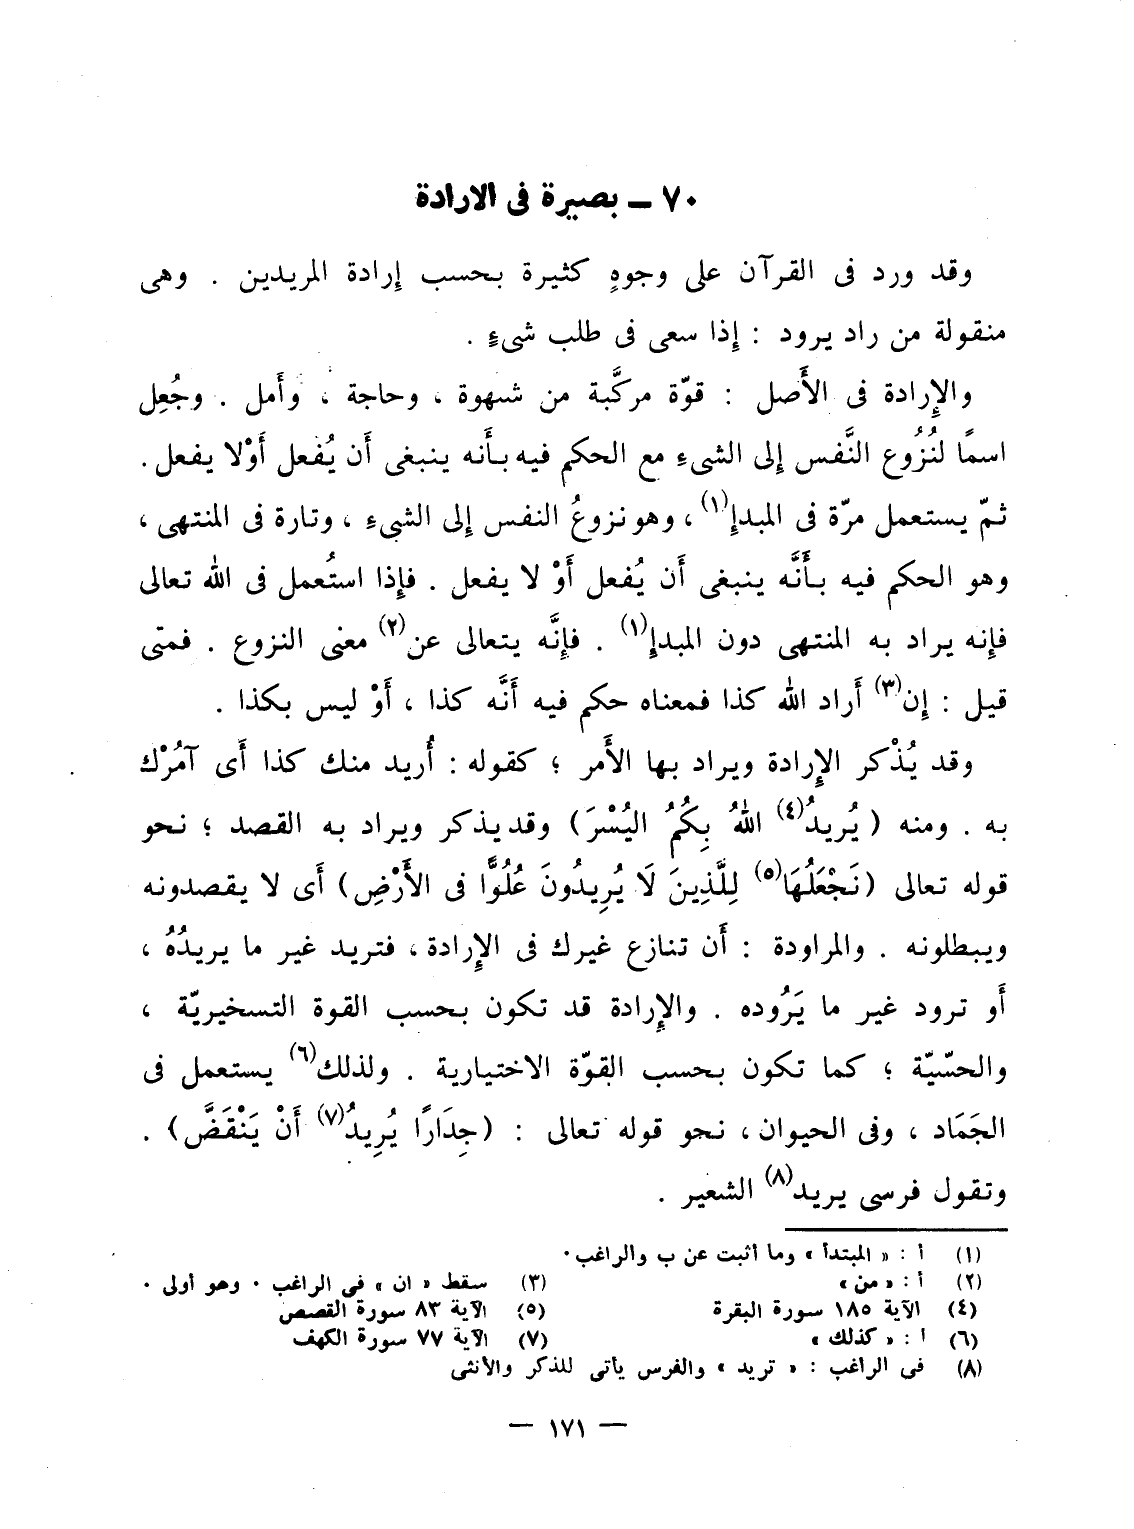 ٧٠ ـ بصيرة فى الارادة
وقد ورد فى القرآن على وجوهٍ كثيرة بحسب إرادة المريدين . وهى
منقولة من راد يرود : إذا سعى فى طلب شىءٍ .
والإرادة فى الأَصل : قوّة مركَّبة من شهوة ، وحاجة ، وأَمل . وجُعِل
اسمًا لنُزُوع النَّفس إلى الشىءِ مع الحكم فيه بأَنه ينبغى أَن يُفعل أَوْلا يفعل.
ثمّ يستعمل مرّة فى المبدإِ(١) ، وهو نزوعُ النفس إلى الشىءِ ، وتارة فى المنتهى ،
وهو الحكم فيه بأَنَّه ينبغى أَن يُفعل أَوْ لا يفعل . فإِذا استُعمل فى الله تعالى
فإِنه يراد به المنتهى دون المبدإِ(١) . فإِنَّه يتعالى عن(٢) معنى النزوع . فمتى
قيل : إِن(٣) أَراد الله كذا فمعناه حكم فيه أَنَّه كذا ، أَوْ ليس بكذا .
وقد يُذْكر الإِرادة ويراد بها الأَمر ؛ كقوله : أُريد منك كذا أَى آمُرْك
به . ومنه ( يُرِيدُ(٤) اللهُ بِكُمُ اليُسْرَ ) وقد يذكر ويراد به القصد ؛ نحو
قوله تعالى ( نَجْعَلُهَا(٥) لِلَّذِينَ لَا يُرِيدُونَ عُلُوًّا فى الأَرْضِ ) أَى لا يقصدونه
ويبطلونه . والمراودة : أَن تنازع غيرك فى الإِرادة ، فتريد غير ما يريدُهُ ،
أَو ترود غير ما يَرُوده . والإِرادة قد تكون بحسب القوة التسخيريّة ،
والحسّيّة ؛ كما تكون بحسب القوّة الاختيارية . ولذلك(٦) يستعمل فى
الجَمَاد ، وفى الحيوان ، نحو قوله تعالى : ( جِدَارًا يُرِيدُ(٧) أَنْ يَنْقَضَّ ) .
وتقول فرسى يريد(٨) الشعير .
(١) أ : « المبتدأ » وما أثبت عن ب والراغب .
(٢) أ : « من » (٣) سقط « ان » فى الراغب . وهو أولى .
(٤) الآية ١٨٥ سورة البقرة (٥) الآية ٨٣ سورة القصص
(٦) أ : « كذلك » (٧) الآية ٧٧ سورة الكهف
(٨) فى الراغب : « تريد » والفرس يأتى للذكر والأنثى
— ١٧١ —